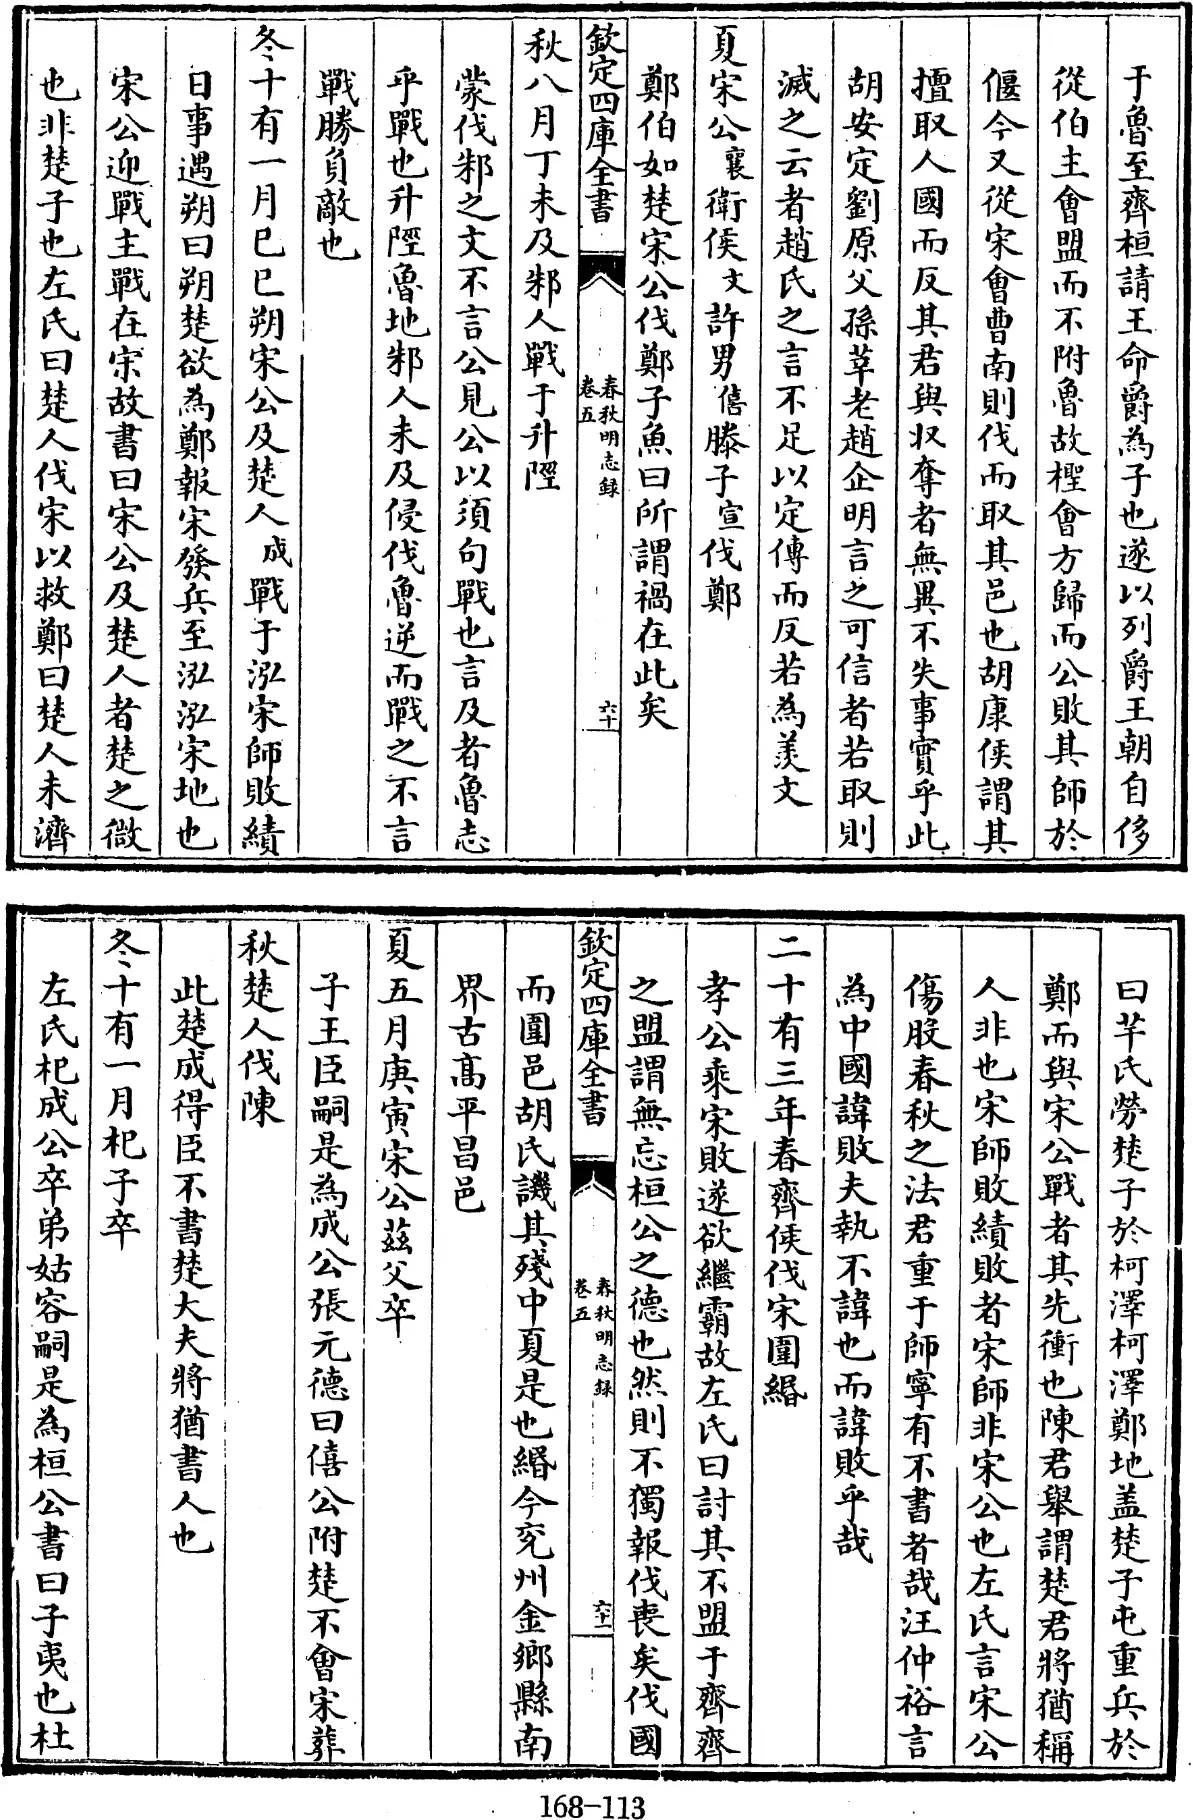 于魯至齊桓請王命爵為子也遂以列爵王朝自侈
從伯主會盟而不附魯故檉會方歸而公敗其師於
偃今又從宋會曹南則伐而取其邑也胡康侯謂其
擅取人國而反其君與収奪者無異不失事實乎此
胡安定劉原父孫莘老趙企明言之可信者若取則
滅之云者趙氏之言不足以定傳而反若為羨文
夏宋公襄衛侯文許男僖滕子宣伐鄭
鄭伯如楚宋公伐鄭子魚曰所謂禍在此矣
欽定四庫全書
春秋明志録
卷五
六十
秋八月丁未及邾人戰于升陘
蒙伐邾之文不言公見公以須句戰也言及者魯志
乎戰也升陘魯地邾人未及侵伐魯逆而戰之不言
戰勝負敵也
冬十有一月己巳朔宋公及楚人成戰于泓宋師敗績
日事遇朔曰朔楚欲為鄭報宋發兵至泓泓宋地也
宋公迎戰主戰在宋故書曰宋公及楚人者楚之微
也非楚子也左氏曰楚人伐宋以救鄭曰楚人未濟
曰芊氏勞楚子於柯澤柯澤鄭地盖楚子屯重兵於
鄭而與宋公戰者其先衝也陳君舉謂楚君將猶稱
人非也宋師敗績敗者宋師非宋公也左氏言宋公
傷股春秋之法君重于師寧有不書者哉汪仲裕言
為中國諱敗夫執不諱也而諱敗乎哉
二十有三年春齊侯伐宋圍緡
孝公乘宋敗遂欲繼霸故左氏曰討其不盟于齊齊
之盟謂無忘桓公之德也然則不獨報伐喪矣伐國
欽定四庫全書
春秋明志録
卷五
六十一
而圍邑胡氏譏其殘中夏是也緡今兖州金鄉縣南
界古高平昌邑
夏五月庚寅宋公茲父卒
子王臣嗣是為成公張元德曰僖公附楚不會宋葬
秋楚人伐陳
此楚成得臣不書楚大夫將猶書人也
冬十有一月杞子卒
左氏杞成公卒弟姑容嗣是為桓公書曰子夷也杜
168-113